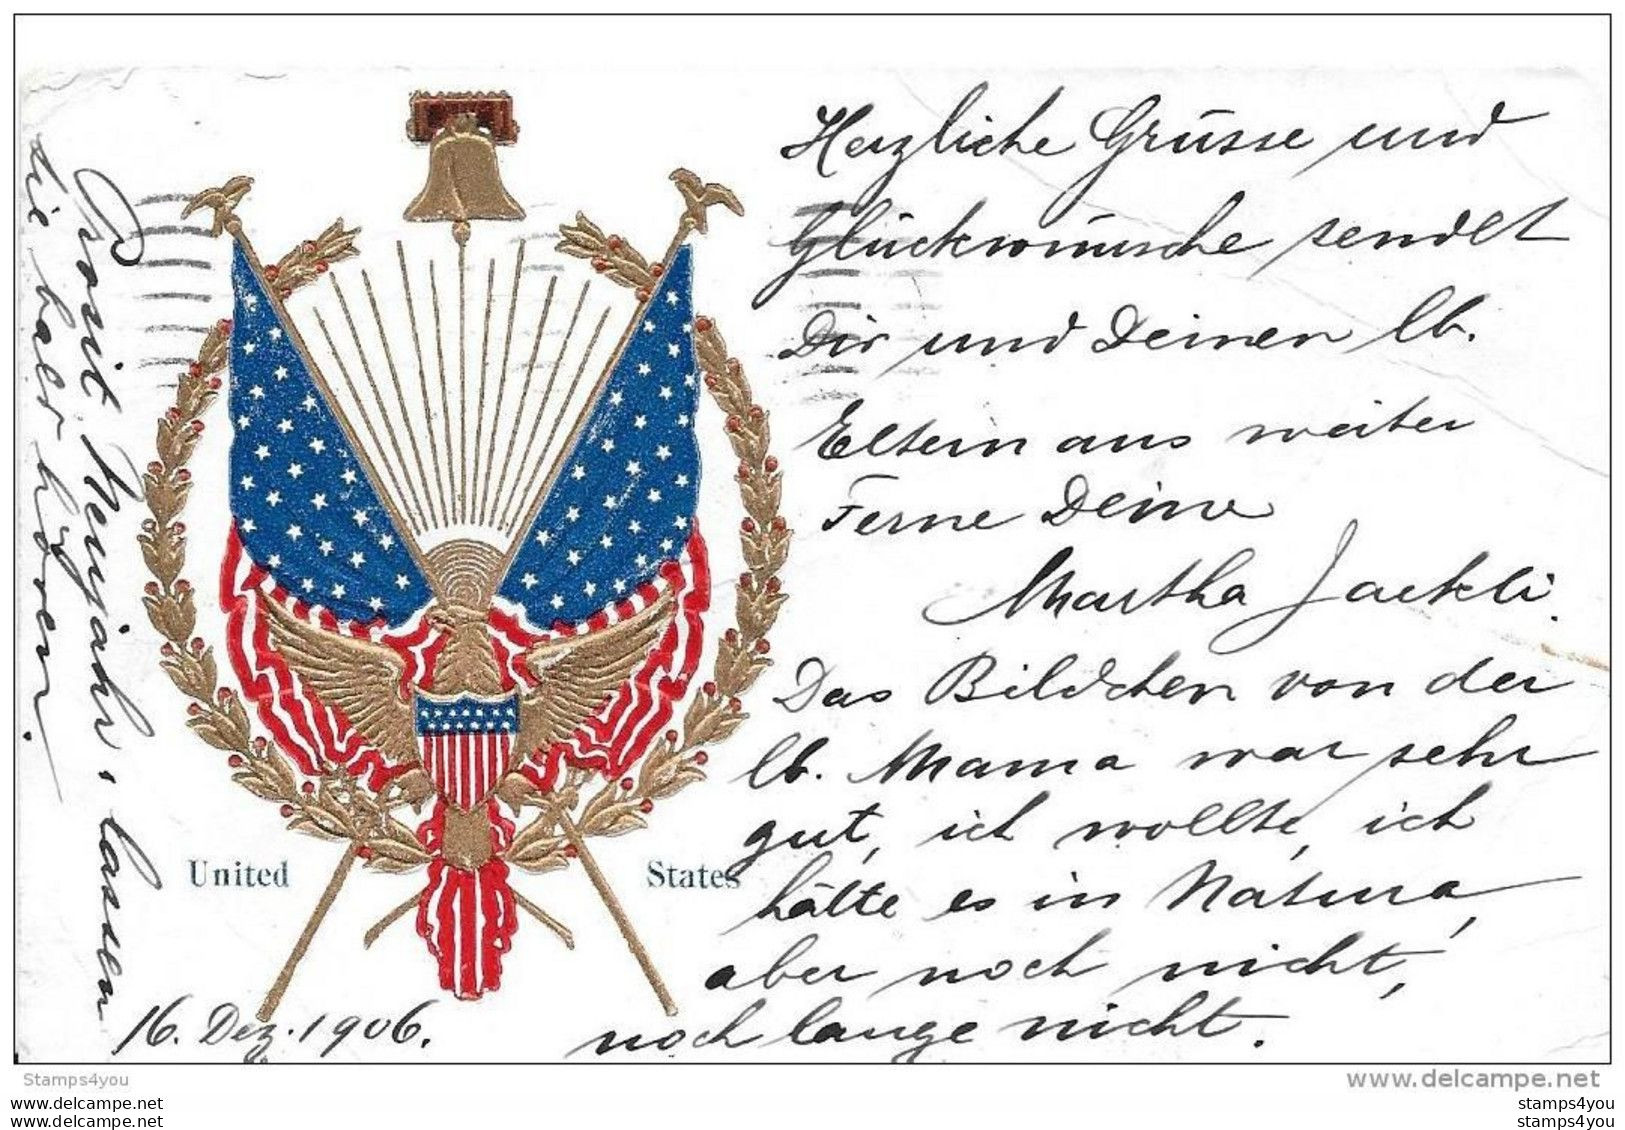 Herzliche Grüsse und
Glückwünsche sendet
Dir und Deinen lb.
Eltern aus weiter
Ferne Deine
Martha Jaeckli.
Das Bildchen von der
lb. Mama war sehr
gut, ich wollte, ich
hätte es in Natura,
aber noch nicht,
noch lange nicht.
16. Dez. 1906.
Prosit Neujahr, lassen
Sie bald hören.
United States
Stamps4you
www.delcampe.net
www.delcampe.com
www.delcampe.com
stamps4you
stamps4you